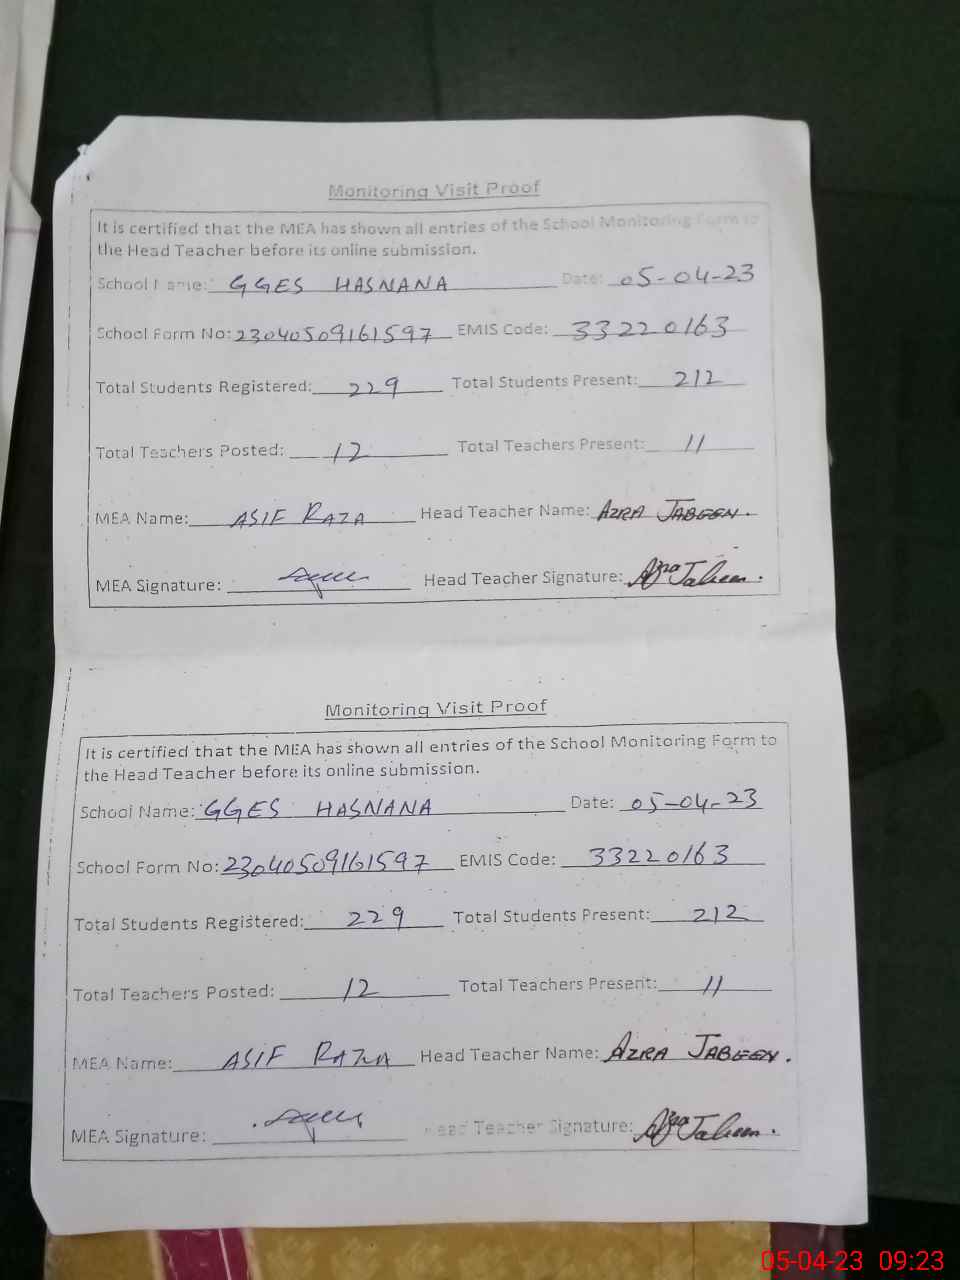 Monitoring Visit Proof
It is certified that the MEA has shown all entries of the School Monitoring Form to
the Head Teacher before its online submission.
School Name: GGES HASNANA Date: 05-04-23
School Form No: 23040509161597 EMIS Code: 33220163
Total Students Registered: 229 Total Students Present: 212
Total Teachers Posted: 12 Total Teachers Present: 11
MEA Name: ASIF RAZA Head Teacher Name: AZRA JABEEN.
MEA Signature: Head Teacher Signature: Azra Jabeen.
Monitoring Visit Proof
It is certified that the MEA has shown all entries of the School Monitoring Form to
the Head Teacher before its online submission.
School Name: GGES HASNANA Date: 05-04-23
School Form No: 23040509161597 EMIS Code: 33220163
Total Students Registered: 229 Total Students Present: 212
Total Teachers Posted: 12 Total Teachers Present: 11
MEA Name: ASIF RAZA Head Teacher Name: AZRA JABEEN.
MEA Signature: Head Teacher Signature: Azra Jabeen.
05-04-23 09:23